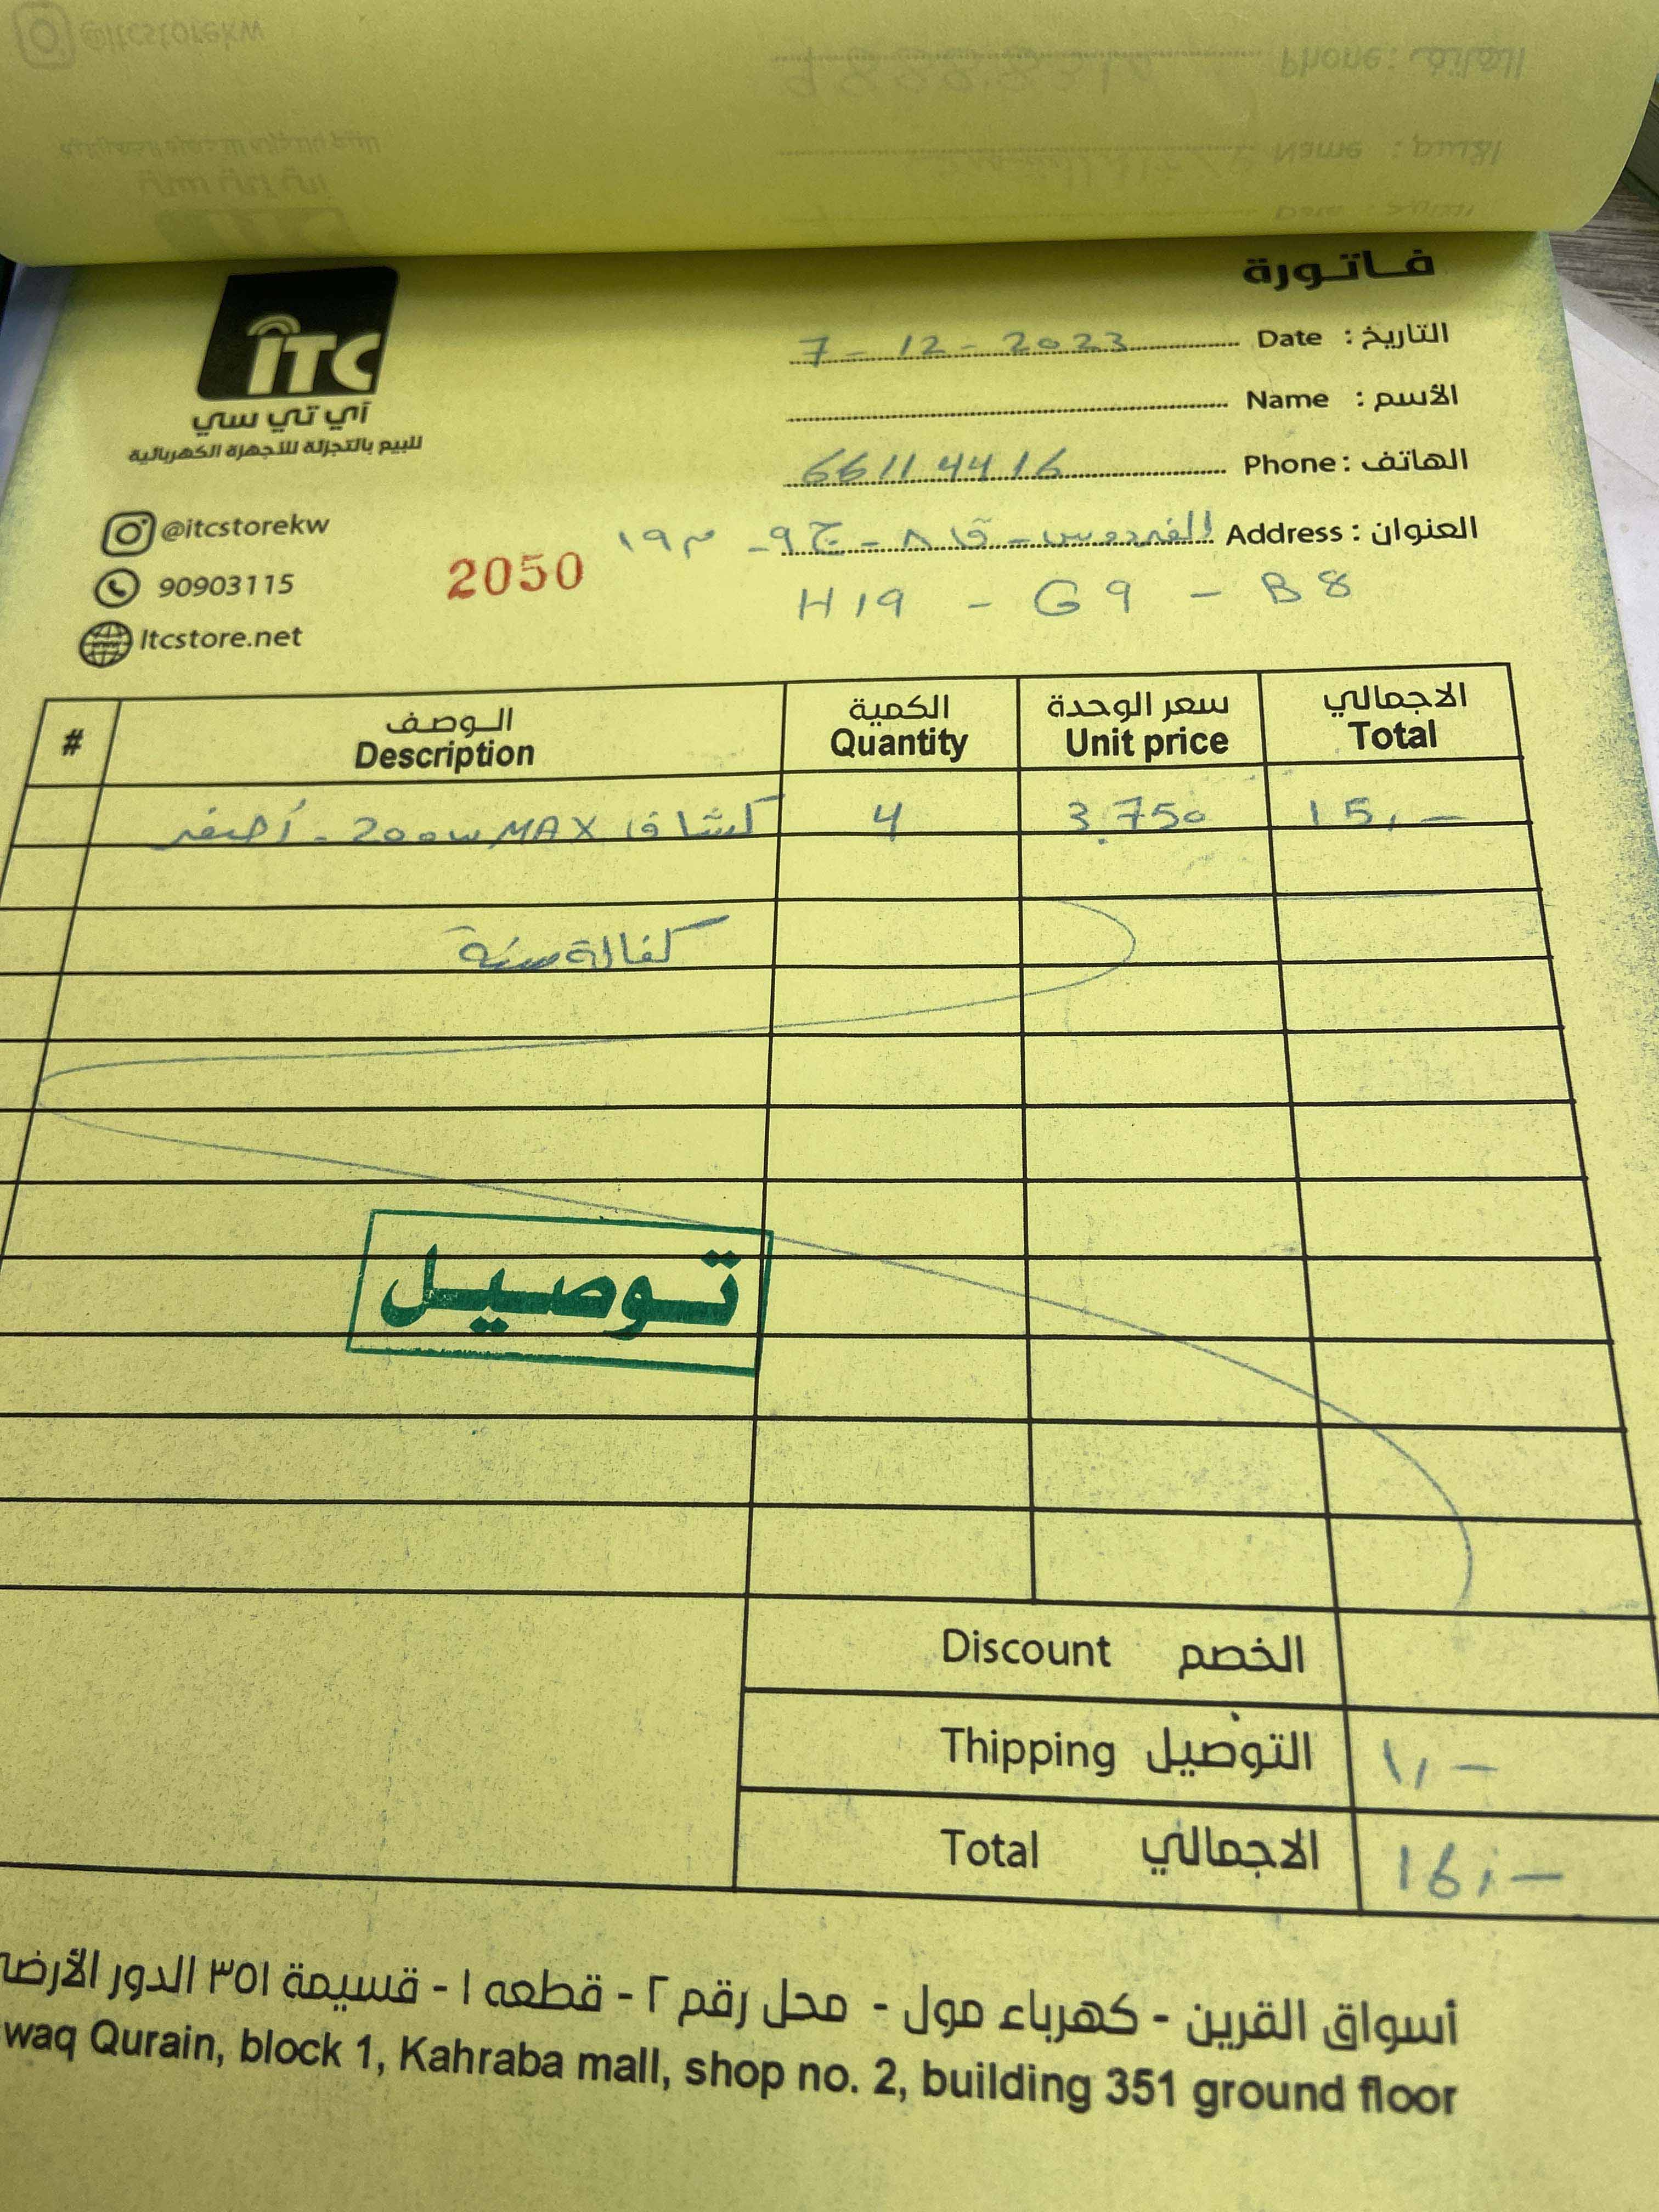 فـاتـورة
ITC
آي تي سي
للبيع بالتجزئة للأجهزة الكهربائية
@itcstorekw
90903115
Itcstore.net
2050
التاريخ : Date 7 - 12 - 2023
الأسم : Name
الهاتف : Phone 66114416
العنوان : Address الفردوس - ق ٨ - ج ٩ - م ١٩
H19 - G9 - B8
# الـوصـف الكمية سعر الوحدة الاجمالي
Description Quantity Unit price Total
كشاف 200w MAX - أصفر 4 3.750 15,-
كفالة سنة
تـوصـيـل
Discount الخصم
Thipping التوصيل ١,-
Total الاجمالي 16,-
أسواق القرين - كهرباء مول - محل رقم ٢ - قطعه ١ - قسيمة ٣٥١ الدور
waq Qurain, block 1, Kahraba mall, shop no. 2, building 351 ground floor